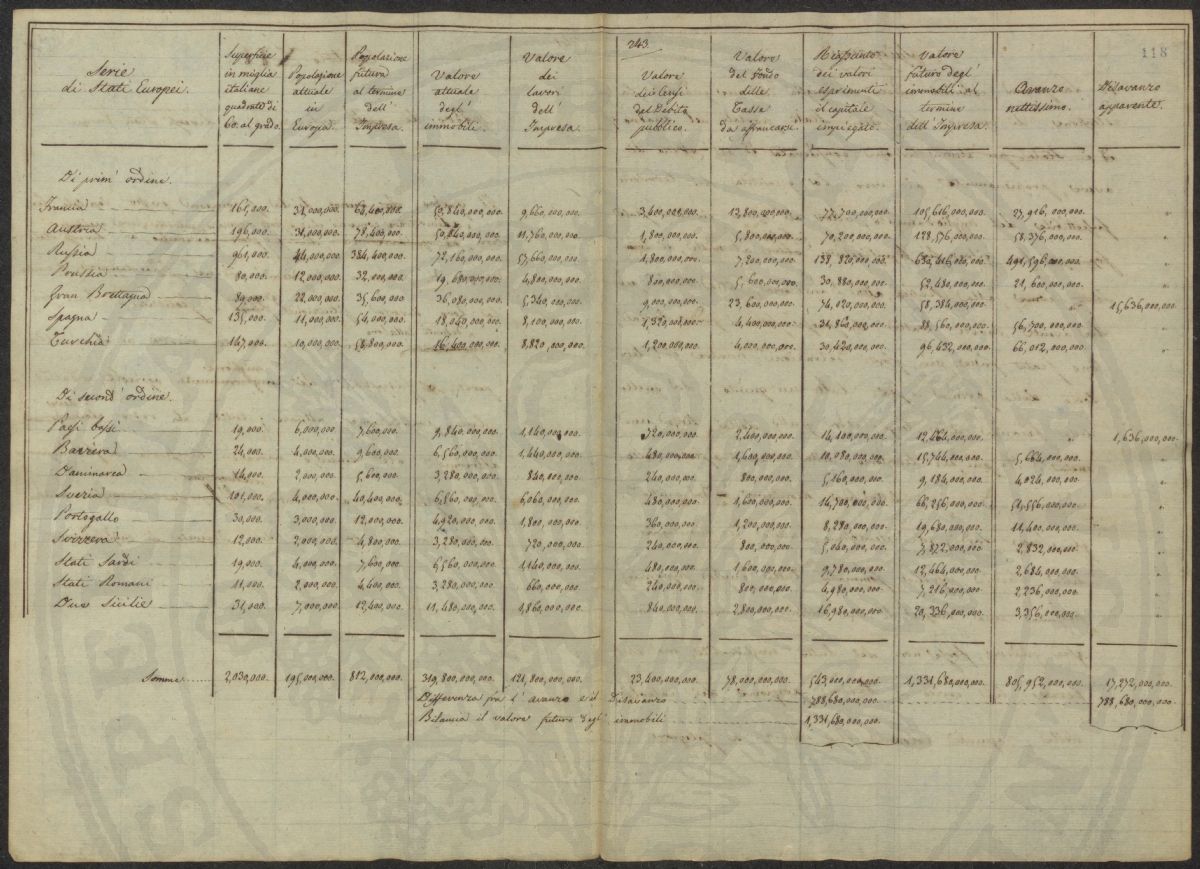 243.
118
Serie di Stati Europei.
Superficie in miglia italiane quadrate di 60. al grado.
Popolazione attuale in Europa.
Popolazione futura al termine dell' Impresa.
Valore attuale degl' immobili.
Valore dei lavori dell' Impresa.
Valore dei Censi del Debito pubblico.
Valore del Fondo delle Tasse da affrancarsi.
Riassunto dei valori esprimenti il capitale impiegato.
Valore futuro degl' immobili al termine dell' Impresa.
Avanzo nettissimo.
Disavanzo apparente.
Di prim' ordine.
Francia 161,000. 31,000,000. 64,400,000. 50,840,000,000. 9,660,000,000. 3,400,000,000. 13,800,000,000. 77,700,000,000. 105,616,000,000. 27,916,000,000. "
Austria 196,000. 31,000,000. 78,400,000. 50,840,000,000. 11,760,000,000. 1,800,000,000. 5,800,000,000. 70,200,000,000. 128,576,000,000. 58,376,000,000. "
Russia 961,000. 44,000,000. 384,400,000. 72,160,000,000. 57,660,000,000. 1,800,000,000. 7,200,000,000. 138,820,000,000. 630,416,000,000. 491,596,000,000. "
Prussia 80,000. 12,000,000. 32,000,000. 19,680,000,000. 4,800,000,000. 800,000,000. 5,600,000,000. 30,880,000,000. 52,480,000,000. 21,600,000,000. "
Gran Brettagna 89,000. 22,000,000. 35,600,000. 36,080,000,000. 5,340,000,000. 9,000,000,000. 23,600,000,000. 74,020,000,000. 58,384,000,000. " 15,636,000,000.
Spagna 135,000. 11,000,000. 54,000,000. 18,040,000,000. 8,100,000,000. 1,320,000,000. 4,400,000,000. 31,860,000,000. 88,560,000,000. 56,700,000,000. "
Turchia 147,000. 10,000,000. 58,800,000. 16,400,000,000. 8,820,000,000. 1,200,000,000. 4,000,000,000. 30,420,000,000. 96,432,000,000. 66,012,000,000. "
Di second' ordine.
Paesi bassi 19,000. 6,000,000. 7,600,000. 9,840,000,000. 1,140,000,000. 720,000,000. 2,400,000,000. 14,100,000,000. 12,464,000,000. " 1,636,000,000.
Baviera 24,000. 4,000,000. 9,600,000. 6,560,000,000. 1,440,000,000. 480,000,000. 1,600,000,000. 10,080,000,000. 15,744,000,000. 5,664,000,000. "
Danimarca 14,000. 2,000,000. 5,600,000. 3,280,000,000. 840,000,000. 240,000,000. 800,000,000. 5,160,000,000. 9,184,000,000. 4,024,000,000. "
Svezia 101,000. 4,000,000. 40,400,000. 6,560,000,000. 6,060,000,000. 480,000,000. 1,600,000,000. 14,700,000,000. 66,256,000,000. 51,556,000,000. "
Portogallo 30,000. 3,000,000. 12,000,000. 4,920,000,000. 1,800,000,000. 360,000,000. 1,200,000,000. 8,280,000,000. 19,680,000,000. 11,400,000,000. "
Svizzera 12,000. 2,000,000. 4,800,000. 3,280,000,000. 720,000,000. 240,000,000. 800,000,000. 5,040,000,000. 7,872,000,000. 2,832,000,000. "
Stati Sardi 19,000. 4,000,000. 7,600,000. 6,560,000,000. 1,140,000,000. 480,000,000. 1,600,000,000. 9,780,000,000. 12,464,000,000. 2,684,000,000. "
Stati Romani 11,000. 2,000,000. 4,400,000. 3,280,000,000. 660,000,000. 240,000,000. 800,000,000. 4,980,000,000. 7,216,000,000. 2,236,000,000. "
Due Sicilie 31,000. 7,000,000. 12,400,000. 11,480,000,000. 1,860,000,000. 840,000,000. 2,800,000,000. 16,980,000,000. 20,336,000,000. 3,356,000,000. "
Somme 2,030,000. 195,000,000. 812,000,000. 319,800,000,000. 121,800,000,000. 23,400,000,000. 78,000,000,000. 543,000,000,000. 1,331,680,000,000. 805,952,000,000. 17,272,000,000.
Differenza fra l' avanzo e il Disavanzo 788,680,000,000. 788,680,000,000.
Bilancia il valore futuro degl' immobili 1,331,680,000,000.